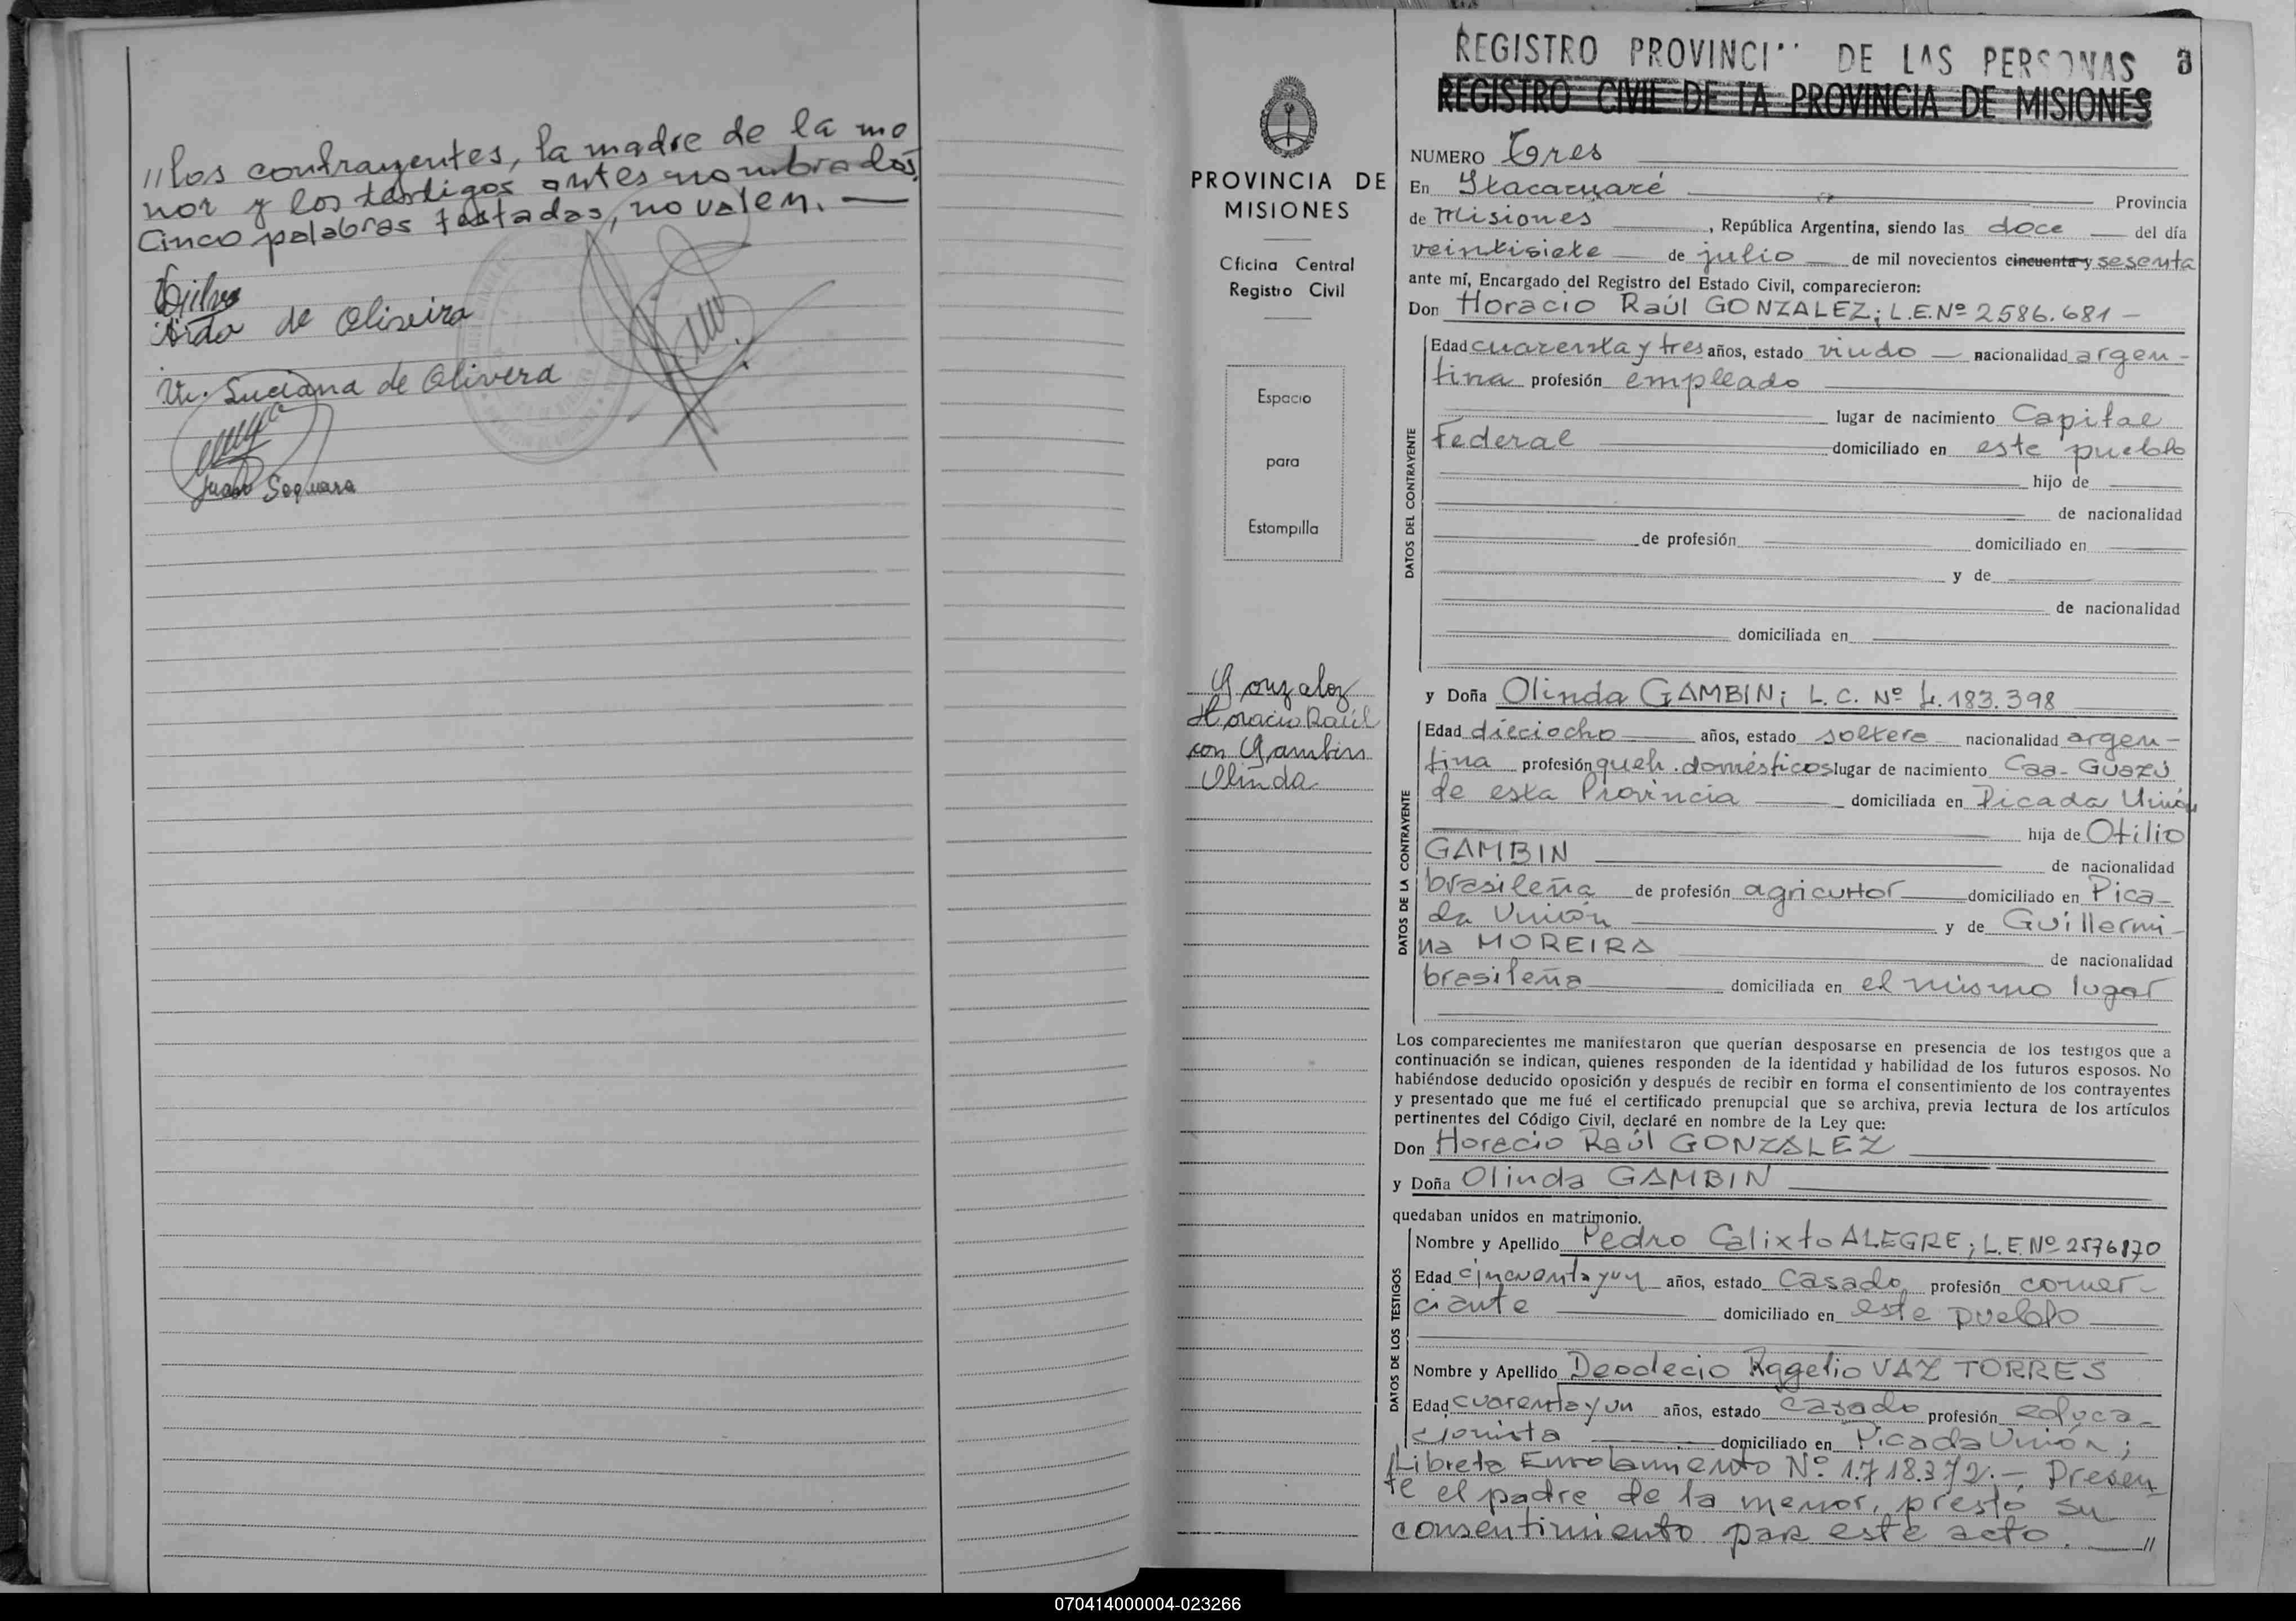 //los contrayentes, la madre de la me
nor y los testigos antes nombrados.
Cinco palabras testadas, no valen. —
Aida de Oliveira
Luciana de Olivera
Juan Sequeira
PROVINCIA DE
MISIONES
Oficina Central
Registro Civil
Espacio
para
Estampilla
Gonzalez
Horacio Raúl
con Gambin
Olinda
REGISTRO PROVINCI DE LAS PERSONAS 3
REGISTRO CIVIL DE LA PROVINCIA DE MISIONES
NUMERO Tres
En Itacaruaré Provincia
de Misiones, República Argentina, siendo las doce del día
veintisiete de julio de mil novecientos cincuenta y sesenta
ante mí, Encargado del Registro del Estado Civil, comparecieron:
Don Horacio Raúl GONZALEZ; L.E.Nº 2586.681 —
DATOS DEL CONTRAYENTE
Edad cuarenta y tres años, estado viudo — nacionalidad argen-
tina profesión empleado
lugar de nacimiento Capital
Federal domiciliado en este pueblo
hijo de
de nacionalidad
de profesión domiciliado en
y de
de nacionalidad
domiciliada en
y Doña Olinda GAMBIN; L.C. Nº 4.183.398
DATOS DE LA CONTRAYENTE
Edad dieciocho años, estado soltera nacionalidad argen-
tina profesión queh. domésticos lugar de nacimiento Caa-Guazú
de esta Provincia domiciliada en Picada Unión
hija de Otilio
GAMBIN de nacionalidad
brasileña de profesión agricultor domiciliado en Pica-
da Unión y de Guillermi-
na MOREIRA de nacionalidad
brasileña domiciliada en el mismo lugar
Los comparecientes me manifestaron que querían desposarse en presencia de los testigos que a
continuación se indican, quienes responden de la identidad y habilidad de los futuros esposos. No
habiéndose deducido oposición y después de recibir en forma el consentimiento de los contrayentes
y presentado que me fué el certificado prenupcial que se archiva, previa lectura de los artículos
pertinentes del Código Civil, declaré en nombre de la Ley que:
Don Horacio Raúl GONZALEZ
y Doña Olinda GAMBIN
quedaban unidos en matrimonio.
DATOS DE LOS TESTIGOS
Nombre y Apellido Pedro Calixto ALEGRE; L.E.Nº 2576170
Edad cincuenta y un años, estado casado profesión comer-
ciante domiciliado en este pueblo
Nombre y Apellido Deodecio Rogelio VAZ TORRES
Edad cuarenta y un años, estado casado profesión educa-
cionista domiciliado en Picada Unión;
Libreta Enrolamiento Nº 1.718.372.— Presen
te el padre de la menor, prestó su
consentimiento para este acto. //
070414000004-023266